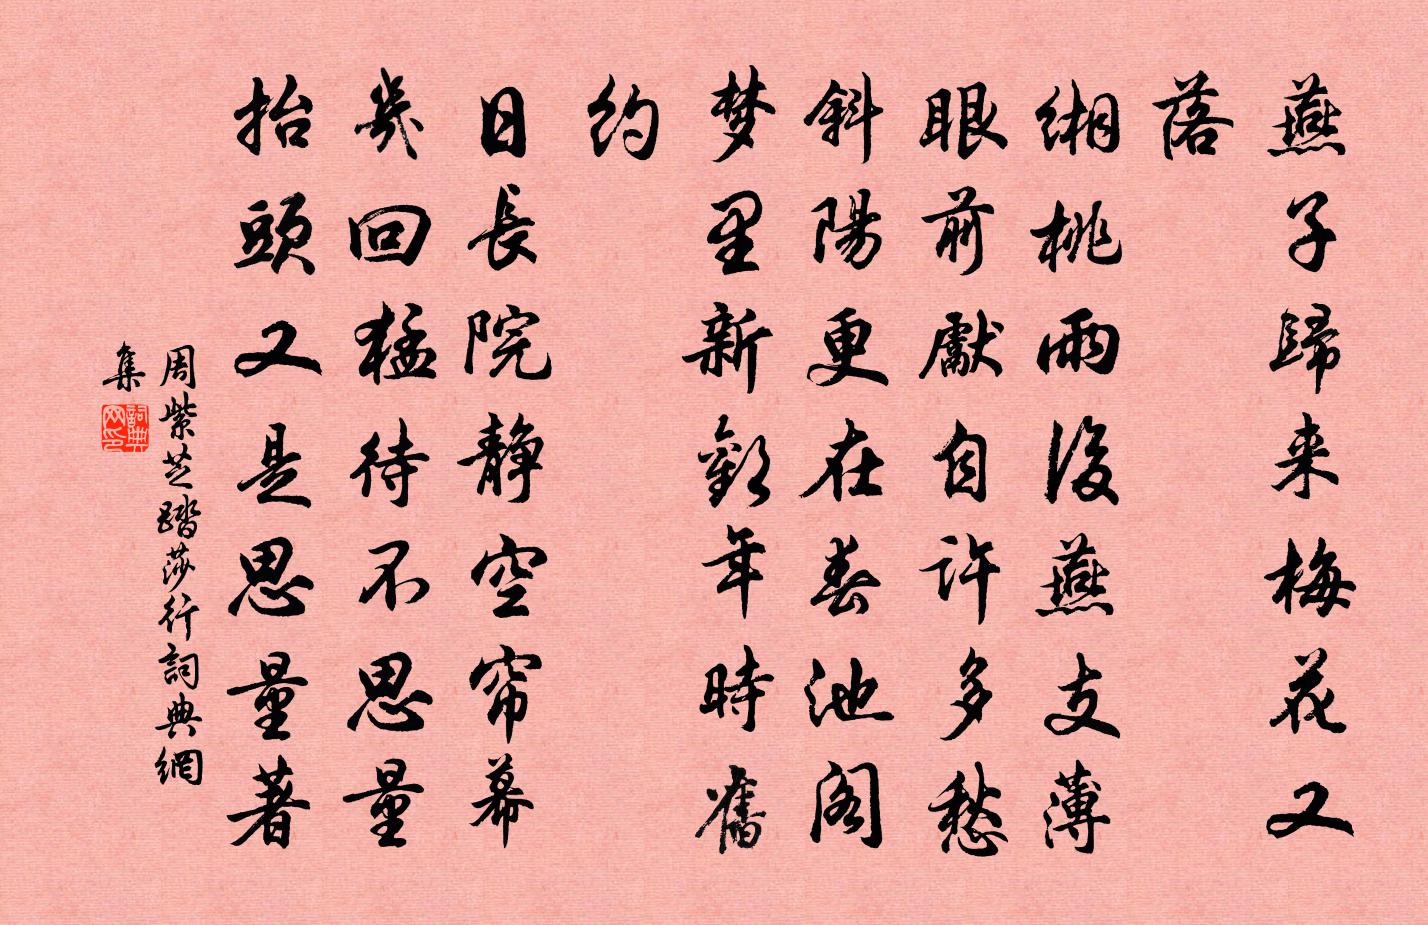 燕子歸来梅花又
落
緗桃雨後燕支薄
眼前獻自許多愁
斜陽更在春池閣
梦里新歡年時舊
約
日長院静空帘幕
幾回猛待不思量
抬頭又是思量著
周紫芝踏莎行詞典網
集
詞典
网印